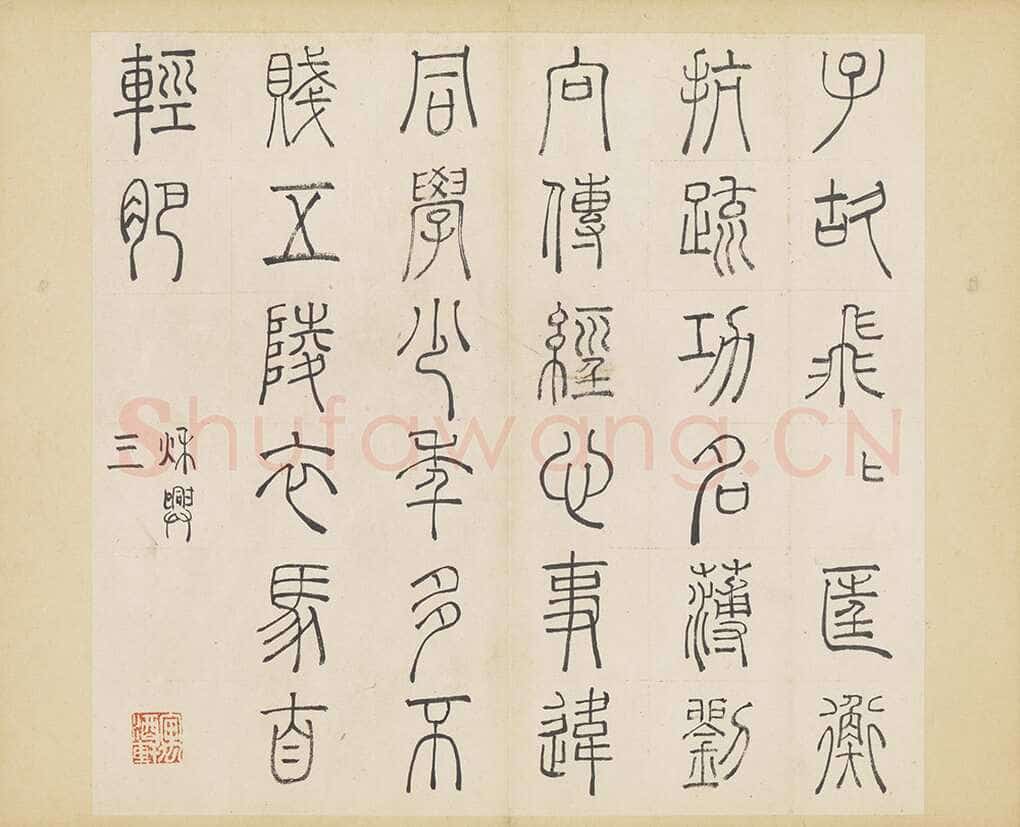 子故飛〻匡衡
抗疏功名薄劉
向傳經心事違
同學少年多不
賤五陵衣馬自
輕肥
秋興
三
Shufawang.CN